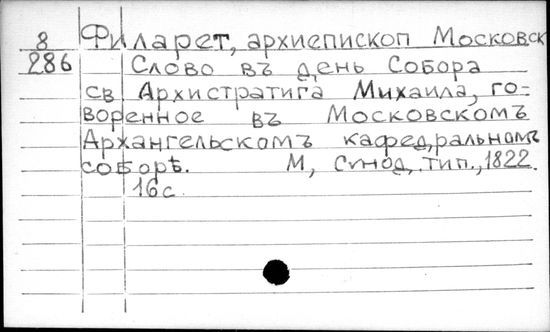 8 Филарет, архиепископ Московск
286 Слово въ день Собора
св Архистратига Михаила, го-
воренное въ Московскомъ
Архангельскомъ кафедральномъ
соборѣ. М, Сѵнод. тип., 1822.
16 с.